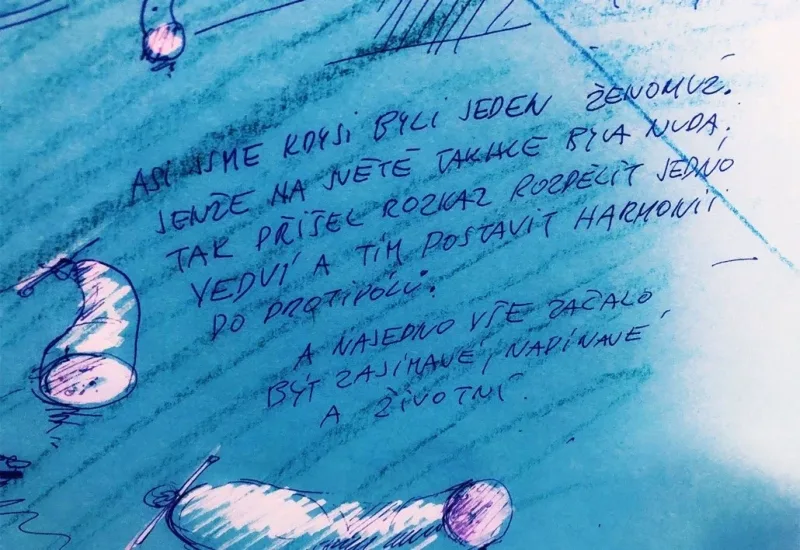 ASI JSME KDYSI BYLI JEDEN ŽENOMUŽ.
JENŽE NA SVĚTĚ TAKHLE BYLA NUDA.
TAK PŘIŠEL ROZKAZ ROZDĚLIT JEDNO
VEDVÍ A TÍM POSTAVIT HARMONII
DO PROTIPÓLŮ.
A NAJEDNO VŠE ZAČALO
BÝT ZAJÍMAVÉ, NAPÍNAVÉ
A ŽIVOTNÍ.